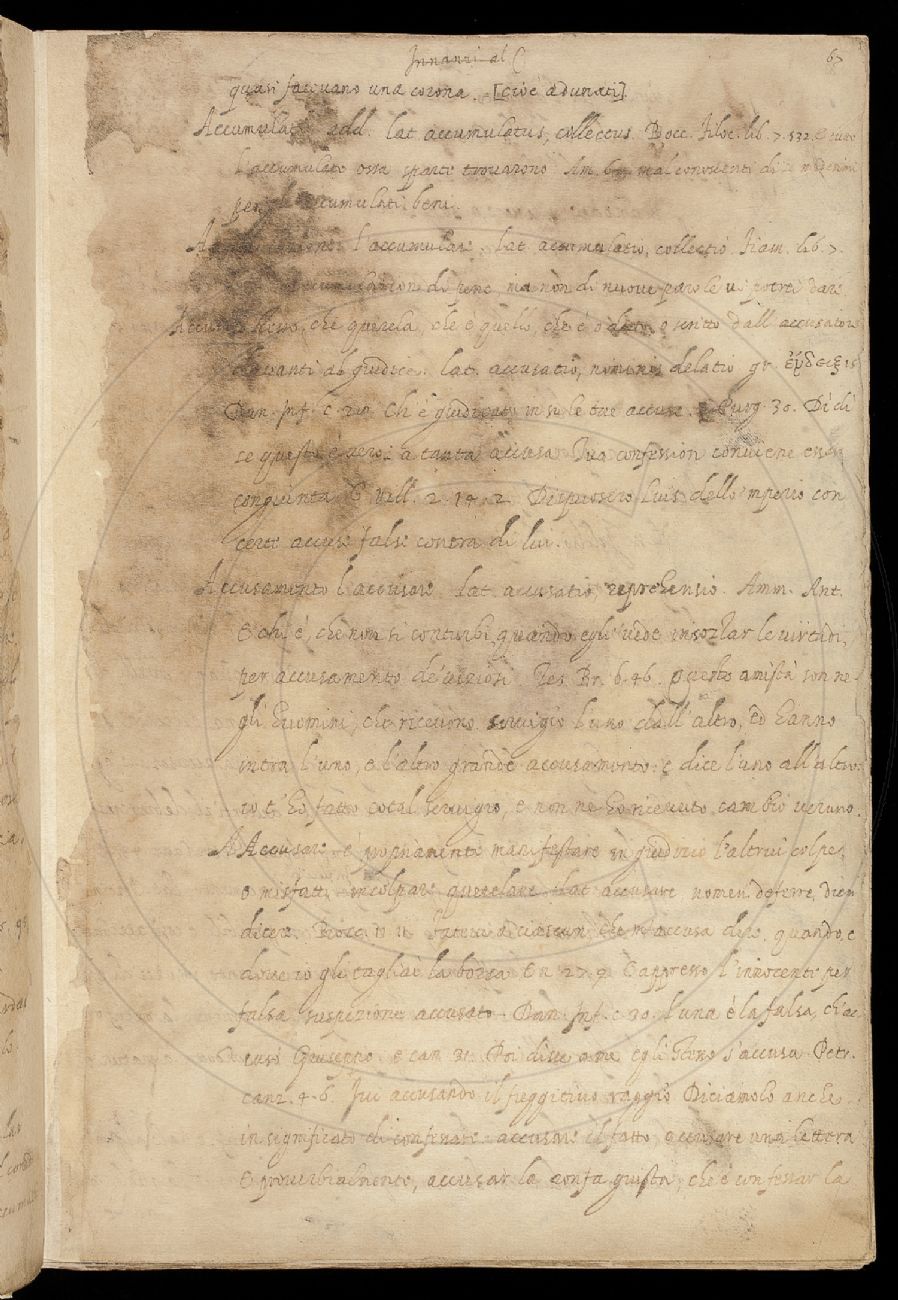 Innanzi al C
67
quasi facevano una corona. [cioè adunati]
Accumulato add. lat. accumulatus, collectus. Bocc. filoc. lib. 7. 532. E
l'accumulate ossa sparte trovarono Am. 67 mal conoscenti di
per accumulati beni.
l'accumulare. lat. accumulatio, collectio. fiam. lib. 7.
di pene, ma non di nuove parole vi potre' dare
Accusa. Esso, che querela, che è quello, che è o detto, o scritto dall'accusatore
davanti al giudice. lat. accusatio, nominis delatio gr. ἔνδειξις
Dan. Inf. c. 20. Ch' è giudicato in su le tue accuse. E Purg. 30. Di di
se questo è vero: a tanta accusa Tua confession conviene esser
congiunta G. vill. 2. 14. 2. Dispuosero lui dello 'mperio con
certe accuse false contra di lui.
Accusamento l'accusare lat. accusatio, reprehensio. Amm. Ant.
E chi è, che non si conturbi, quando egli vede insozzar le virtudi,
per accusamento de' viziosi Tes. Br. 6. 46. Queste amistà son ne
gli huomini, che ricevono servigio l'uno dall'altro, ed hanno
intra l'uno, e l'altro grande accusamento: e dice l'uno all'altro:
io t' ho fatto cotal servigio, e non ne ho ricevuto cambio veruno.
Accusare è propriamente manifestare in giudicio l'altrui colpe,
o misfatti incolpare querelare. lat. accusare nomen deferre, diem
dicere. Bocc. n. 11. fatevi a ciascun, che m'accusa dire, quando, e
dove io gli tagliai la borsa E n. 27. 9. E appresso l'innocente per
falsa suspizione accusato. Dan. Inf. c. 30. l'una è la falsa, ch' ac
cusò Giuseppo. e can. 31. Poi disse a me egli stesso s'accusa. Petr.
canz. 4. 6. Ivi accusando il fuggitivo raggio Diciamolo anche
in significato di confessare. accusare il fatto, accusare una lettera
E proverbialmente, accusar la ronfa giusta, che è confessar la